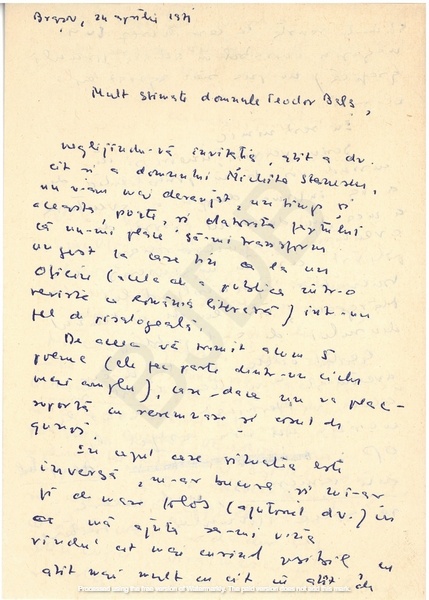 Brașov, 24 aprilie 1971
Mult stimate domnule Teodor Balș,
neglijîndu-vă invitația, atît a dv.
cît și a domnului Nichita Stănescu,
nu v-am mai deranjat un timp și
aceasta, poate, și datorită faptului
că nu-mi place să-mi transform
un gest la care țin ca la un
Oficiu (acela de a publica într-o
revistă ca România literară) într-un
fel de
De aceea vă trimit acum 5
poeme (ele fac parte dintr-un ciclu
mai amplu), care - dacă nu va plac -
suportă cu resemnare și coșul de
gunoi.
În cazul care situația este
inversă, m-ar bucura și mi-ar
fi de mare folos (ajutorul dv.) în
a mă ajuta să-mi văd
rîndul cît mai curînd posibil cu
atît mai mult cu cît în atît de
BJBV